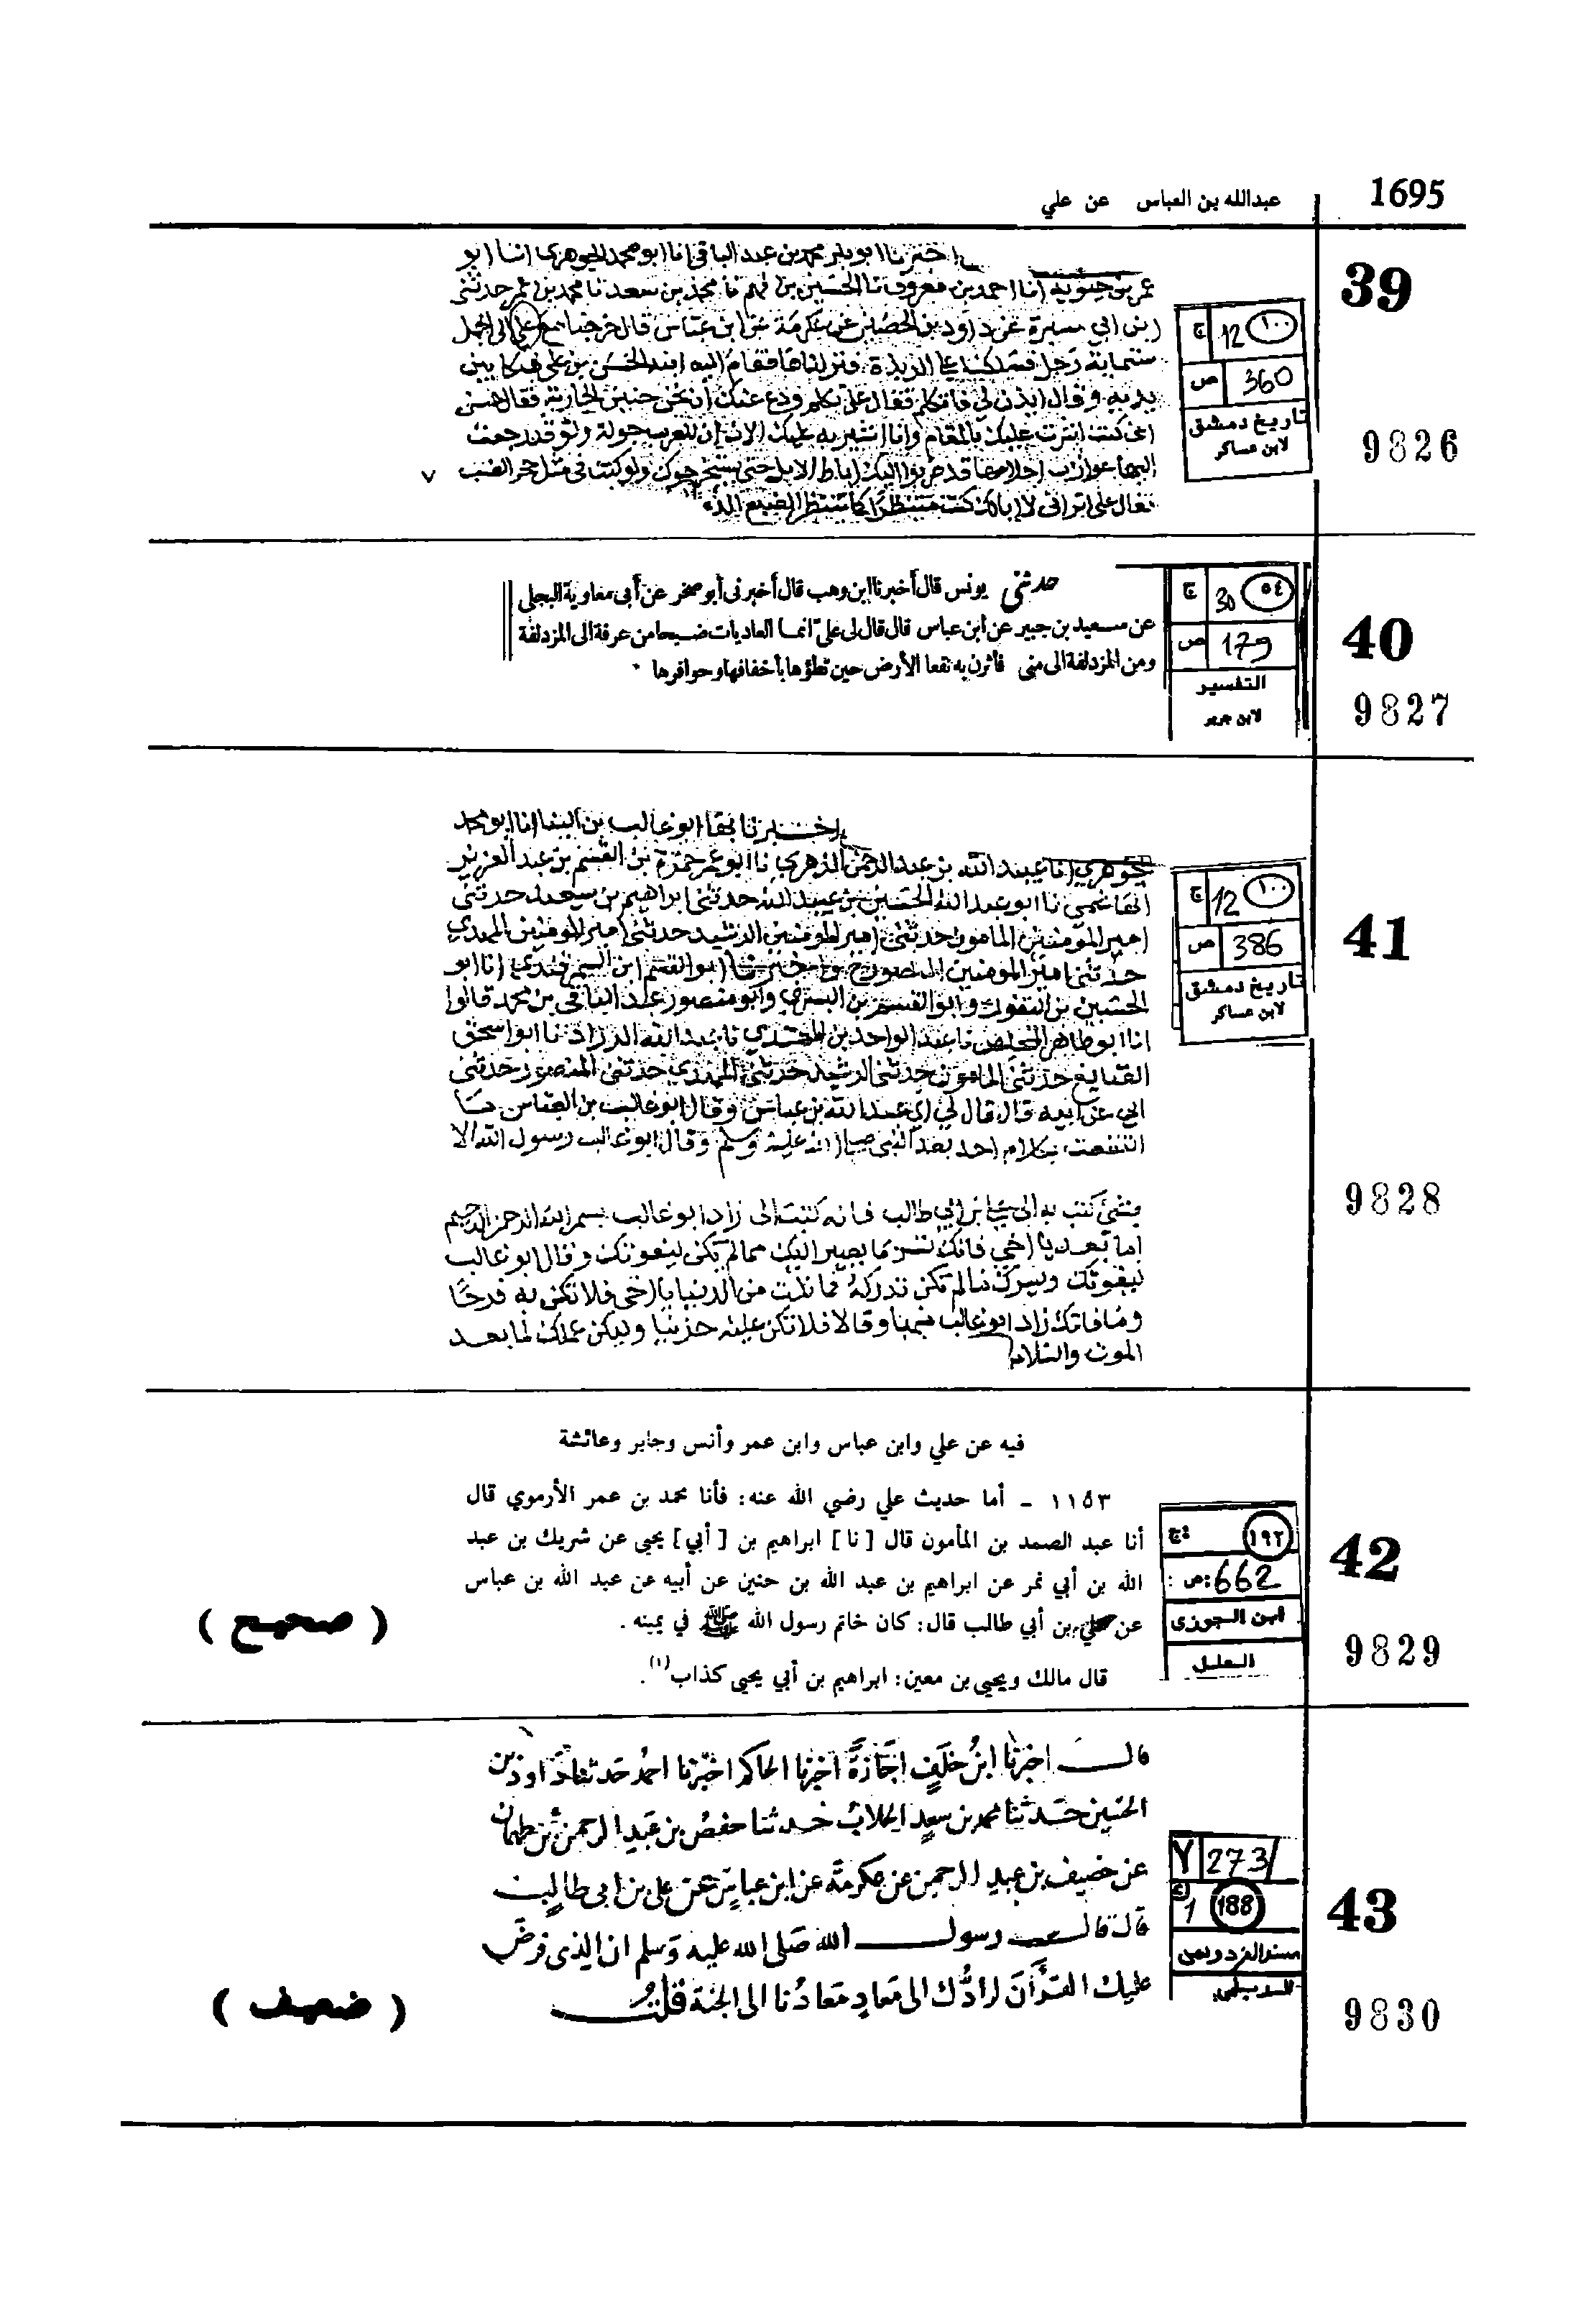 1695
عبدالله بن العباس عن علي
39
ج 12 ١٠٠
ص 360
تاريخ دمشق
لابن عساكر
9826
اخبرنا ابو بكر محمد بن عبد الباقي انا ابو محمد الجوهري انا ابو
عمر بن حيويه انا احمد بن معروف نا الحسين بن فهم نا محمد بن سعد نا محمد بن عمر حدثني
ابن ابي سبرة عن داود بن الحصين عن عكرمة عن ابن عباس قال خرجنا مع علي الى الجمل
ستمائة رجل فسلكنا على الربذة فنزلناها فقام اليه ابنه الحسن بن علي فبكا بين
يديه وقال ايذن لي فاتكلم فقال علي تكلم ودع عنك ان تحن حنين الجارية فقال حسن
اني كنت اشرت عليك بالمقام وانا اشير به عليك الان ان للعرب جولة ولو قد رجعت
اليها عوازب احلامها قد ضربوا اليك اباط الابل حتى يستخرجوك ولو كنت في مثل جحر الضب
فقال علي اتراني لا ابالك كنت منتظرا كما تنتظر الضبع اللدم
40
ج 30 ٥٤
ص 179
التفسير
لابن جرير
9827
حدثني يونس قال أخبرنا ابن وهب قال أخبرني أبو صخر عن أبي معاوية البجلي
عن سعيد بن جبير عن ابن عباس قال قال لي علي انما العاديات ضبحا من عرفة الى المزدلفة
ومن المزدلفة الى منى فأثرن به نقعا الأرض حين تطؤها بأخفافها وحوافرها
41
ج 12 ١٠٠
ص 386
تاريخ دمشق
لابن عساكر
9828
اخبرنا بها ابو غالب بن البنا انا ابو محمد
الجوهري انا عبيد الله بن عبد الرحمن الزهري نا ابو عمر حمزة بن القسم بن عبد العزيز
الهاشمي نا ابو عبد الله الحسين بن عبيد الله حدثني ابراهيم بن سعيد حدثني
امير المؤمنين المامون حدثني امير المؤمنين الرشيد حدثني امير المؤمنين المهدي
حدثني امير المؤمنين المنصور ح واخبرنا ابو القسم ابن السمرقندي انا ابو
الحسين بن النقور وابو القسم بن البسري وابو منصور عبد الباقي بن محمد قالوا
انا ابو طاهر المخلص نا عبد الواحد بن المهتدي نا عبد الله الرزاد نا ابو اسحق
حدثني المامون حدثني الرشيد حدثني المهدي حدثني المنصور حدثني
ابي عن ابيه قال قال لي ابي عبد الله بن عباس وقال ابو غالب بن العباس ما
انتفعت بكلام احد بعد النبي صلى الله عليه وسلم وقال ابو غالب رسول الله الا
بشيء كتب به الي علي بن ابي طالب فانه كتب الي زاد ابو غالب بسم الله الرحمن الرحيم
اما بعد يا اخي فانك تسر بما يصير اليك مما لم يكن ليفوتك وقال ابو غالب
ليفوتك ويسرك ما لم تكن تدركه فما نلت من الدنيا يا اخي فلا تكن به فرحا
وما فاتك زاد ابو غالب منها وقالا فلا تكن عليه حزينا وليكن عملك لما بعد
الموت والسلام
42
ج: ١٩٢
ص: 662
ابن الجوزي
العلل
9829
فيه عن علي وابن عباس وابن عمر وأنس وجابر وعائشة
١١٥٣ - أما حديث علي رضي الله عنه: فأنا محمد بن عمر الأرموي قال
أنا عبد الصمد بن المأمون قال [ نا ] ابراهيم بن [ أبي ] يحيى عن شريك بن عبد
الله بن أبي نمر عن ابراهيم بن عبد الله بن حنين عن أبيه عن عبد الله بن عباس
عن علي بن أبي طالب قال: كان خاتم رسول الله ﷺ في يمينه .
قال مالك ويحيى بن معين: ابراهيم بن أبي يحيى كذاب(١).
( صحيح )
43
273
1 188
مسند الفردوس
الديلمي
9830
قال اخبرنا ابن خلف اجازة اخبرنا الحاكم اخبرنا احمد حدثنا داود بن
الحسين حدثنا محمد بن سعيد الجلاب حدثنا حفص بن عبد الرحمن بن طهمان
عن خصيف بن عبد الرحمن عن عكرمة عن ابن عباس عن علي بن ابي طالب
قال قال رسول الله صلى الله عليه وسلم ان الذي فرض
عليك القرآن لرادك الى معاد معادنا الى الجنة قلت
( ضعيف )